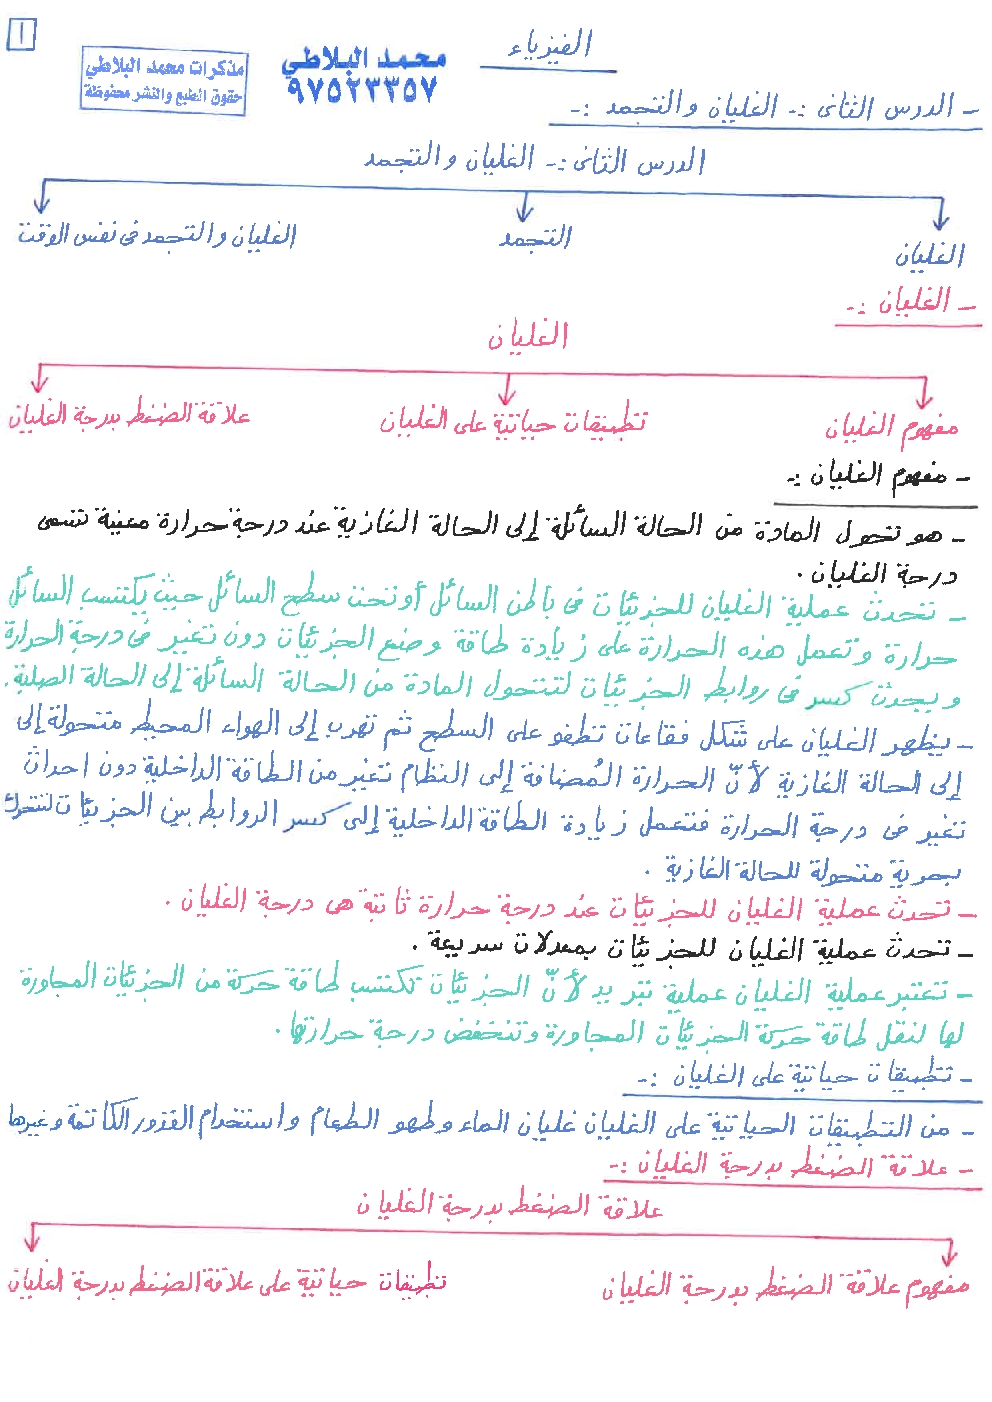 ١
الفيزياء
محمد البلاطي
٩٧٥٢٣٣٥٧
مذكرات محمد البلاطي
حقوق الطبع والنشر محفوظة
- الدرس الثانى :- الغليان والتجمد :-
الدرس الثانى :- الغليان والتجمد
الغليان
التجمد
الغليان والتجمد فى نفس الوقت
- الغليان :-
الغليان
مفهوم الغليان
تطبيقات حياتية على الغليان
علاقة الضغط بدرجة الغليان
- مفهوم الغليان :-
- هو تحول المادة من الحالة السائلة إلى الحالة الغازية عند درجة حرارة معينة تسمى
درجة الغليان .
- تحدث عملية الغليان للجزيئات فى باطن السائل أو تحت سطح السائل حيث يكتسب السائل
حرارة وتعمل هذه الحرارة على زيادة طاقة وضع الجزيئات دون تغير فى درجة الحرارة
ويحدث كسر فى روابط الجزيئات لتتحول المادة من الحالة السائلة إلى الحالة الصلبة .
- يظهر الغليان على شكل فقاعات تطفو على السطح ثم تهرب إلى الهواء المحيط متحولة إلى
إلى الحالة الغازية لأنّ الحرارة المُضافة إلى النظام تغير من الطاقة الداخلية دون احداث
تغير فى درجة الحرارة فتعمل زيادة الطاقة الداخلية إلى كسر الروابط بين الجزيئات لتتحرك
بحرية متحولة للحالة الغازية .
- تحدث عملية الغليان للجزيئات عند درجة حرارة ثابتة هى درجة الغليان .
- تحدث عملية الغليان للجزيئات بمعدلات سريعة .
- تعتبر عملية الغليان عملية تبريد لأنّ الجزيئات تكتسب طاقة حركة من الجزيئات المجاورة
لها لنقل طاقة حركة الجزيئات المجاورة وتنخفض درجة حرارتها .
- تطبيقات حياتية على الغليان :-
- من التطبيقات الحياتية على الغليان غليان الماء وطهو الطعام واستخدام القدور الكاتمة وغيرها
- علاقة الضغط بدرجة الغليان :-
علاقة الضغط بدرجة الغليان
مفهوم علاقة الضغط بدرجة الغليان
تطبيقات حياتية على علاقة الضغط بدرجة الغليان